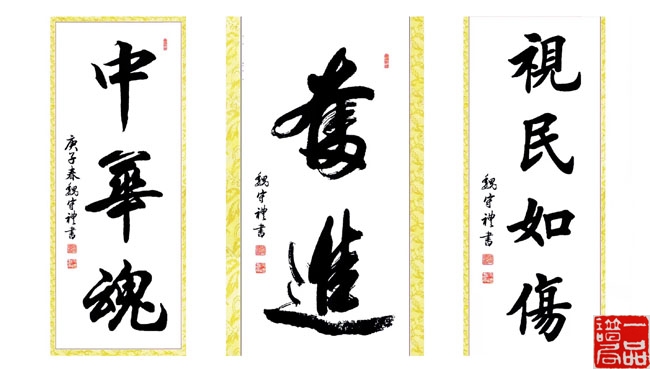 中華魂
庚子春魏守禮書
奮進
魏守禮書
視民如傷
魏守禮書
一品譜名